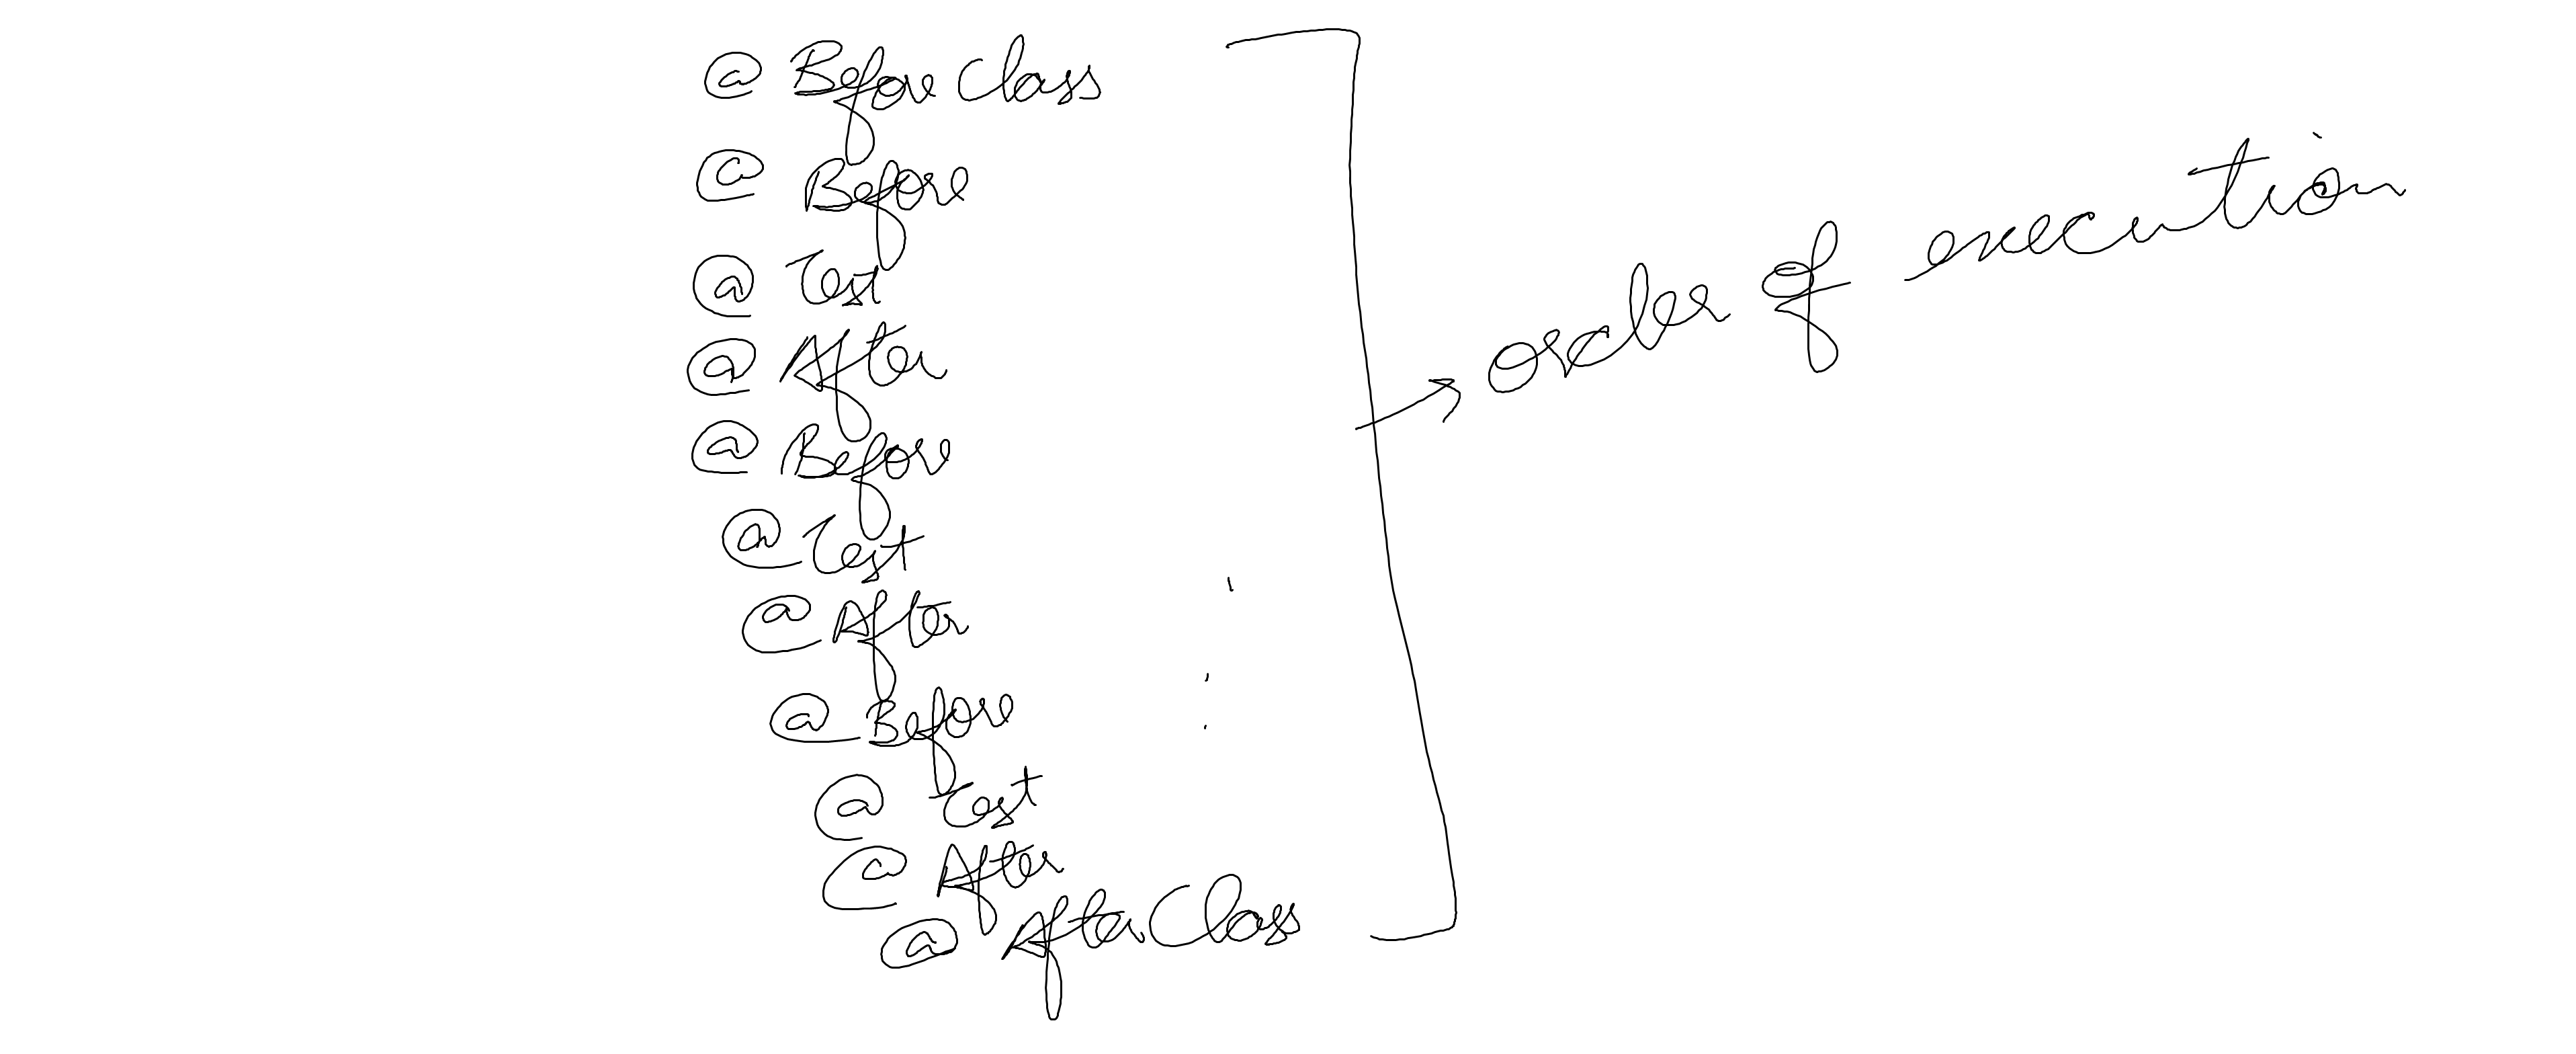 @ BeforeClass
@ Before
@ Test
@ After
@ Before
@ Test
@ After
@ Before
@ Test
@ After
@ AfterClass
order of execution